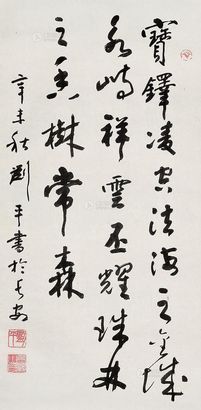 寶鐸凌空法海之金城
永峙祥雲丕耀珠林
之香樹常森
辛未秋劉平書於長安